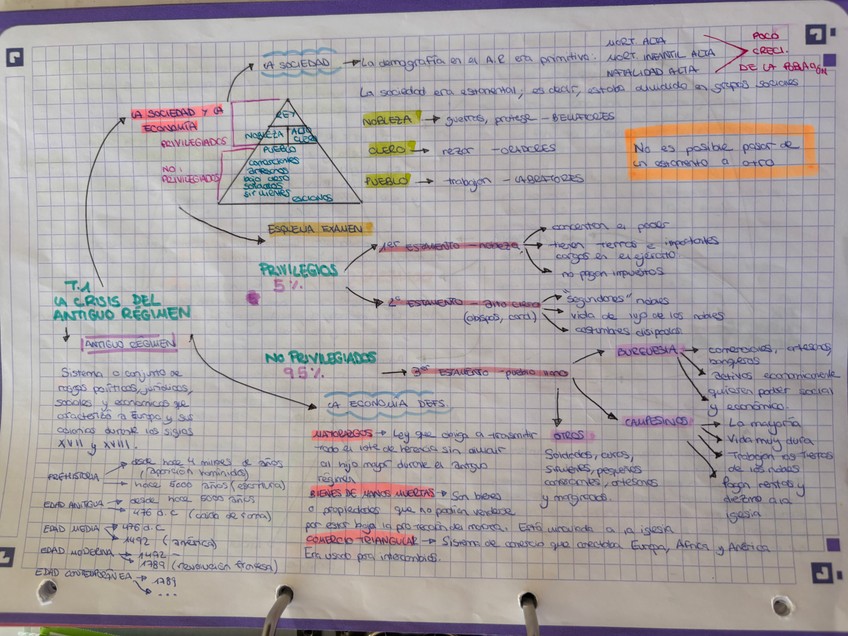 LA SOCIEDAD → La demografía en el A.R era primitiva:
MORT. ALTA
MORT. INFANTIL ALTA
NATALIDAD ALTA
POCO
CRECI.
DE LA POBLACIÓN
La sociedad era estamental; es decir, estaba dividida en grupos sociales
LA SOCIEDAD Y LA
ECONOMÍA
PRIVILEGIADOS
NO
PRIVILEGIADOS
REY
NOBLEZA
ALTO
CLERO
PUEBLO
comerciantes
artesanos
bajo clero
soldados
sirvientes
NOBLEZA → guerras, protege - BELLATORES
CLERO → rezar - ORADORES
PUEBLO → trabajan - LABRATORES
No es posible pasar de
un estamento a otro
ESQUEMA EXAMEN
PRIVILEGIOS
5%
1er ESTAMENTO - nobleza
concentran el poder
tienen tierras e importantes
cargos en el ejército
no pagan impuestos
2º ESTAMENTO - alto clero
(obispos, card.)
"segundones" nobles
vida de lujo de los nobles
costumbres disipadas
NO PRIVILEGIADOS
95%
3er ESTAMENTO - pueblo llano
BURGUESIA
comerciantes, artesanos,
banqueros
activos economicamente
quieren poder social
y económico.
CAMPESINOS
La mayoría
Vida muy dura
Trabajan las tierras
de los nobles
Pagan rentas y
diezmo a la
iglesia
OTROS
Soldados, curas,
sirvientes, pequeños
comerciantes, artesanos
y marginados.
T.1
LA CRISIS DEL
ANTIGUO RÉGIMEN
ANTIGUO RÉGIMEN
Sistema o conjunto de
rasgos políticos, jurídicos,
sociales y económicos que
caracterizó a Europa y sus
colonias durante los siglos
XVII y XVIII.
PREHISTORIA
desde hace 4 millones de años
(aparición homínidos)
hace 5000 años (escritura)
EDAD ANTIGUA
desde hace 5000 años
476 d.C (caída de roma)
EDAD MEDIA
476 d.C
1492 (américa)
EDAD MODERNA
1492 -
1789 (revolución francesa)
EDAD CONTEMPORÁNEA
1789
...
LA ECONOMIA DEFS.
MAYORAZGOS → Ley que obliga a transmitir
todo el lote de herencia sin dividir
al hijo mayor durante el antiguo
régimen
BIENES DE MANOS MUERTAS → Son bienes
o propiedades que no podían venderse
por estar bajo la protección de Está vinculada a la iglesia
COMERCIO TRIANGULAR → Sistema de comercio que conectaba Europa, África y América
Era usado para intercambios.